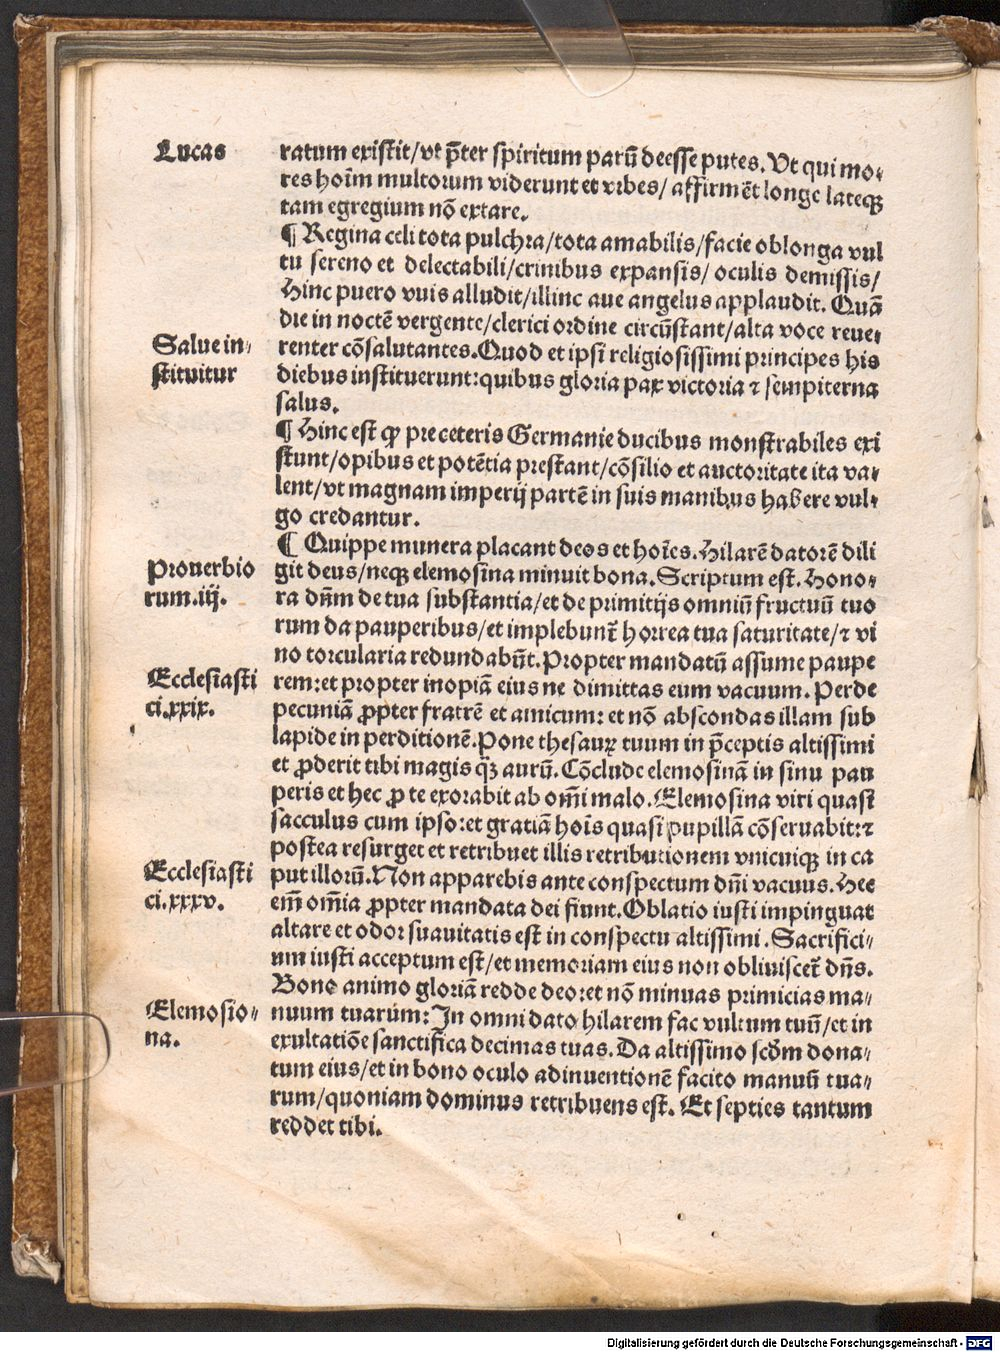 Lucas
ratum existit/vt p̄ter spiritum parū deesse putes. Vt qui mo-
res hoīm multorum viderunt et vrbes/ affirmēt longe lateqꝫ
tam egregium nō extare.
¶ Regina celi tota pulchra/tota amabilis/facie oblonga vul
tu sereno et delectabili/crinibus expansis/ oculis demissis/
Hinc puero vuis alludit/illinc aue angelus applaudit. Quā
die in noctē vergente/clerici ordine circūstant/alta voce reue-
Salue in-
renter cōsalutantes. Quod et ipsi religiosissimi principes his
stituitur
diebus instituerunt: quibus gloria pax victoria ⁊ sempiterna
salus.
¶ Hinc est ꝙ pre ceteris Germanie ducibus monstrabiles exi
stunt/opibus et potētia prestant/cōsilio et auctoritate ita va-
lent/vt magnam imperij partē in suis manibus habere vul-
go credantur.
¶ Quippe munera placant deos et hoīes. Hilarē datorē dili
Prouerbio
git deus/neqꝫ elemosina minuit bona. Scriptum est. Hono-
rum.iij.
ra dn̄m de tua substantia/et de primitijs omniū fructuū tuo
rum da pauperibus/et implebunt̄ horrea tua saturitate/⁊ vi
no torcularia redundabūt. Propter mandatū assume paupe
Ecclesiasti
rem: et propter inopiā eius ne dimittas eum vacuum. Perde
ci.xxix.
pecuniā ꝓpter fratrē et amicum: et nō abscondas illam sub
lapide in perditionē. Pone thesauꝝ tuum in p̄ceptis altissimi
et ꝓderit tibi magis qꝫ̄ aurū. Cōclude elemosinā in sinu pau
peris et hec ꝓ te exorabit ab om̄i malo. Elemosina viri quasi
sacculus cum ipso: et gratiā hoīs quasi pupillā cōseruabit: ⁊
postea resurget et retribuet illis retributionem vnicuiqꝫ in ca
Ecclesiasti
put illorū. Non apparebis ante conspectum dn̄i vacuus. Hec
ci.xxxv.
em̄ om̄ia ꝓpter mandata dei fiunt. Oblatio iusti impinguat
altare et odor suauitatis est in conspectu altissimi. Sacrifici-
um iusti acceptum est/et memoriam eius non obliuiscet̄ dn̄s.
Bono animo gloriā redde deo: et nō minuas primicias ma-
Elemosio-
nuum tuarum: In omni dato hilarem fac vultum tuū/et in
na.
exultatiōe sanctifica decimas tuas. Da altissimo scd̄m dona-
tum eius/et in bono oculo adinuentionē facito manuū tua-
rum/quoniam dominus retribuens est. Et septies tantum
reddet tibi.
Digitalisierung gefördert durch die Deutsche Forschungsgemeinschaft - DFG